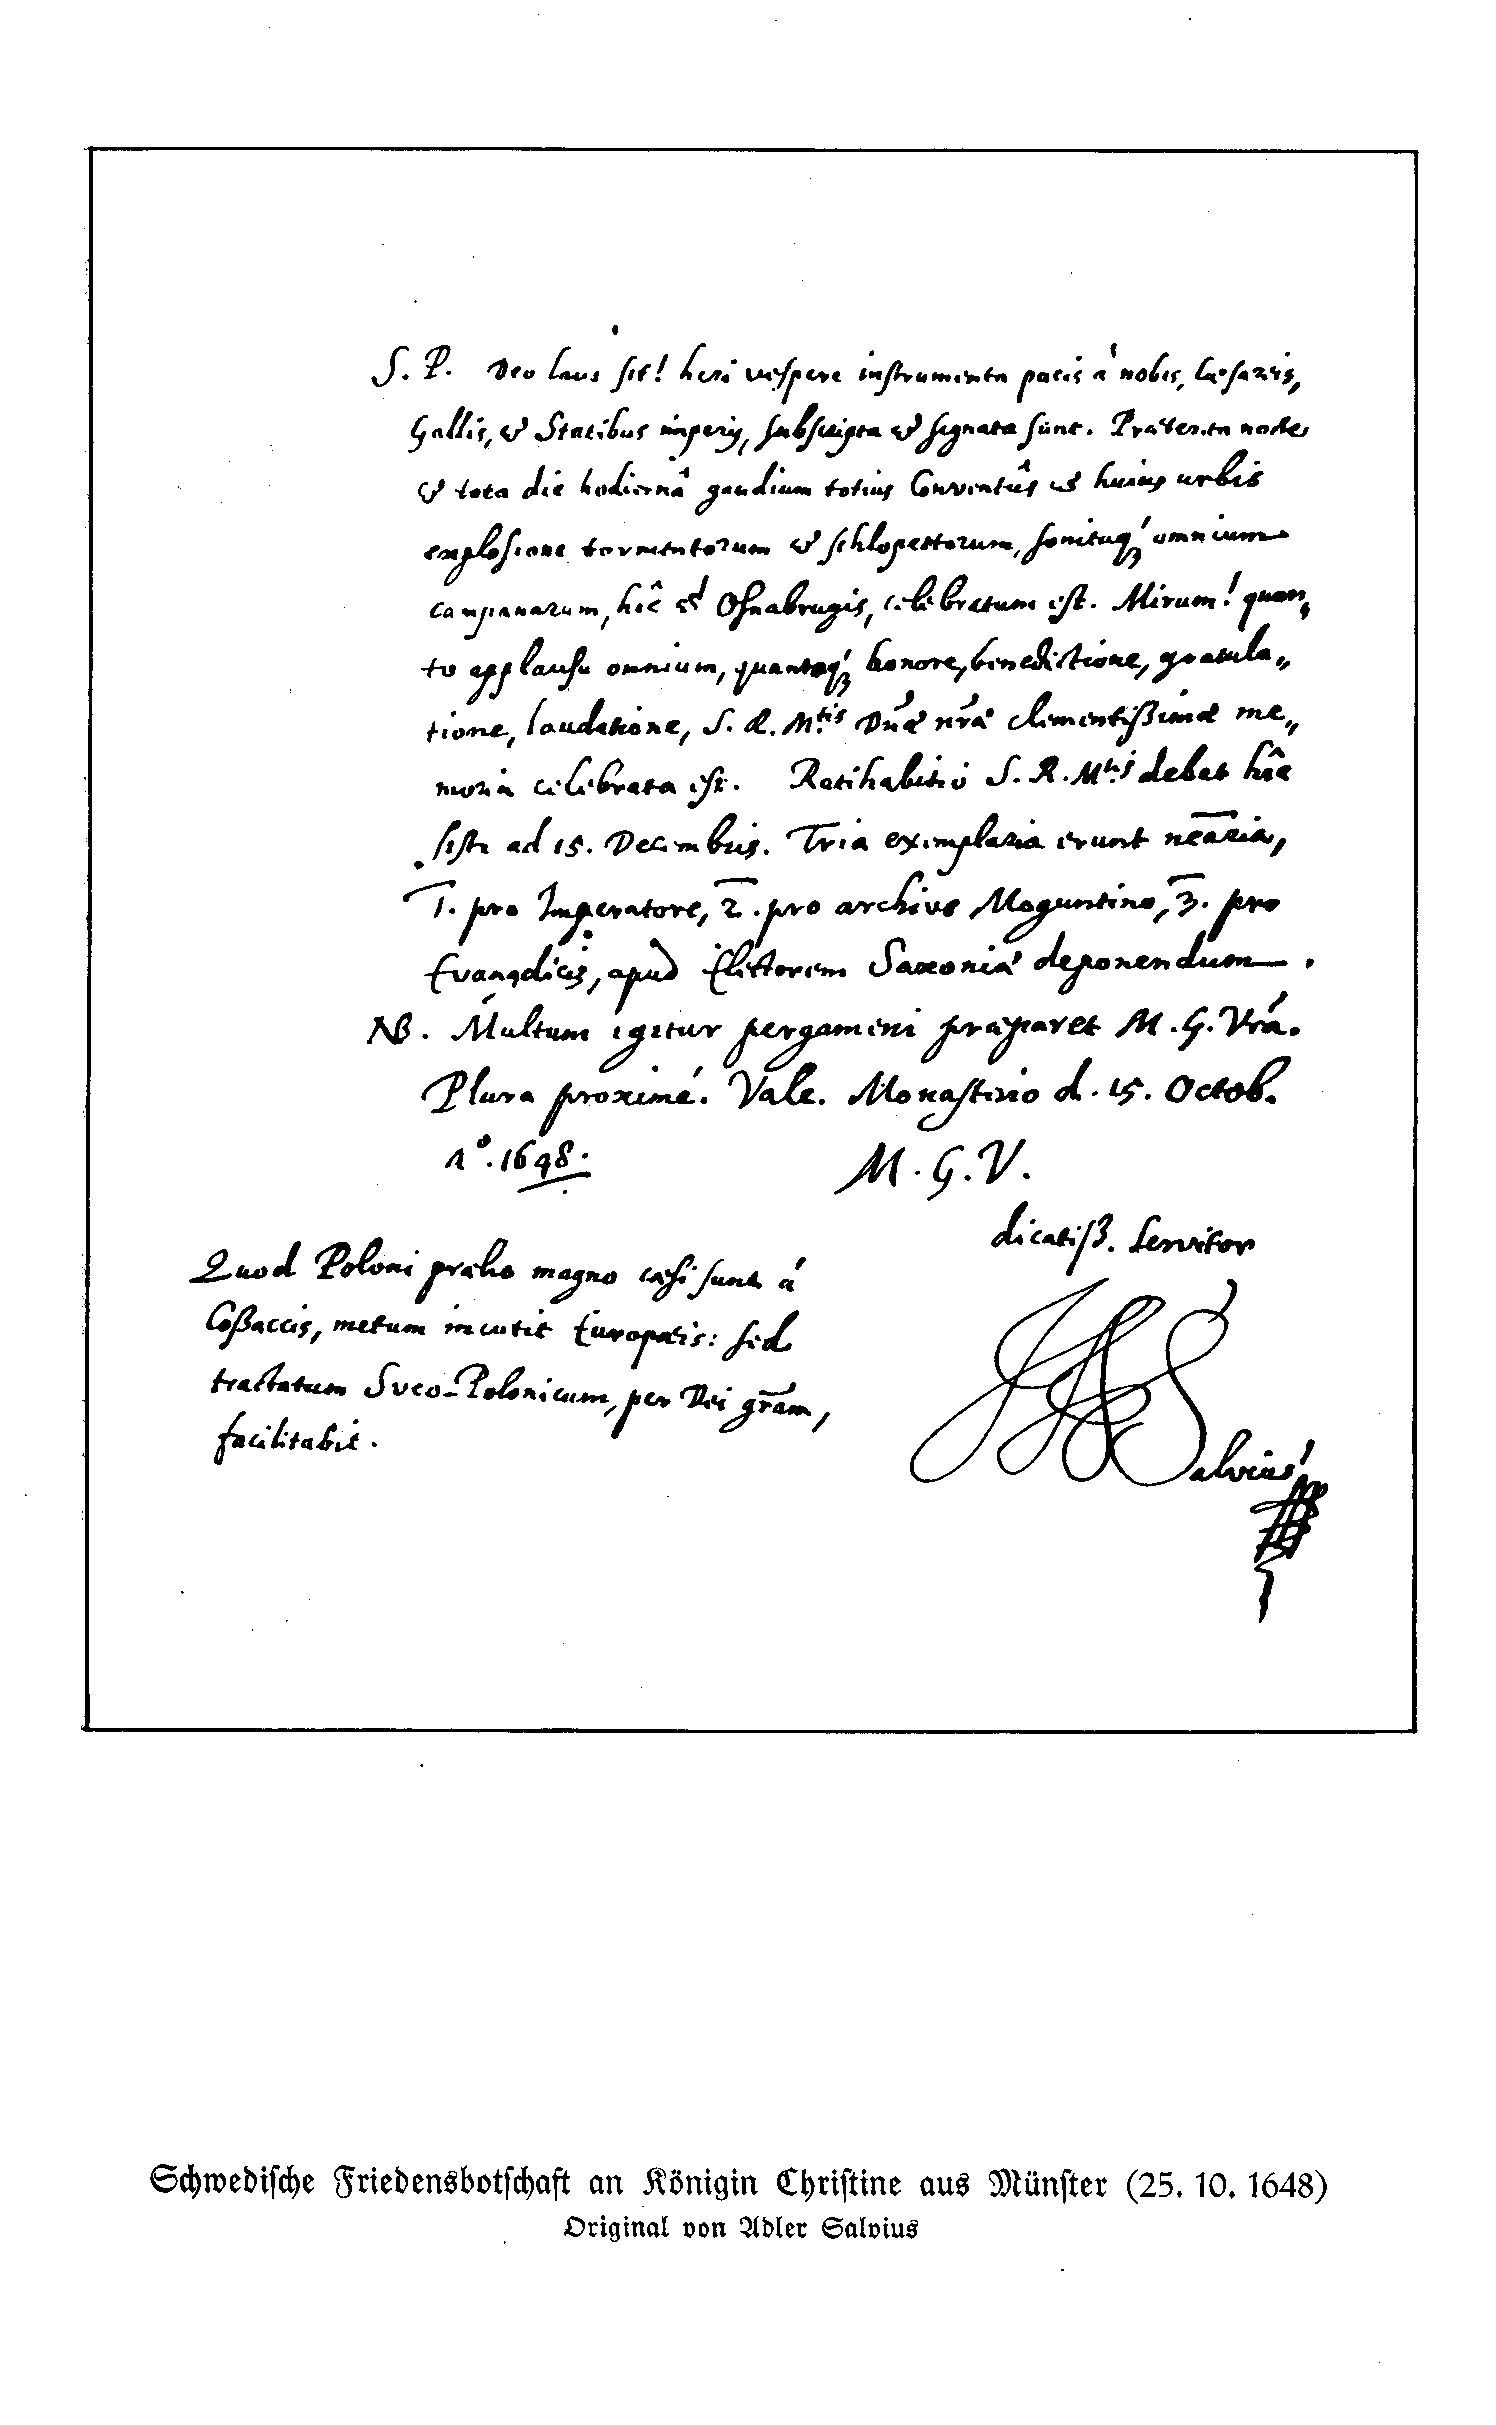 S. P. Deo laus sit! heri vespere instrumenta pacis à nobis, Cæsareis,
Gallis, & Statibus imperij, subscripta & signata sunt. Præterita nocte
& tota die hodiernâ gaudium totius Conventûs & huius urbis
explosione tormentorum & schlopettorum, sonituq́ꝫ omnium
campanarum, hîc & Osnabrugis, celebratum est. Mirum! quan„
to applausu omnium, quantoq́ꝫ honore, benedictione, gratula„
tione, laudatione, S. R. M.tis Dn̄æ nr̄æ clementißimæ me„
moria celebrata est. Ratihabitio S. R. M.tis debet hîc
sisti ad 15. Decembris. Tria exemplaria erunt neāria,
1̄. pro Imperatore, 2̄. pro archivo Moguntino, 3̄. pro
Evangelicis, apud Electorem Saxoniæ deponendum.
NB. Multum igitur pergameni præparet M. G. Vrā.
Plura proximé. Vale. Monasterio d. 15. Octob.
Aº. 1648.
M. G. V.
dicatiß. servitor
JASalvius
Quod Poloni prælio magno cæsi sunt á
Coßaccis, metum incutit Europæis: sed
tractatum Sveo-Polonicum, per Dei gr̄am,
facilitabit.
Schwedische Friedensbotschaft an Königin Christine aus Münster (25. 10. 1648)
Original von Adler Salvius